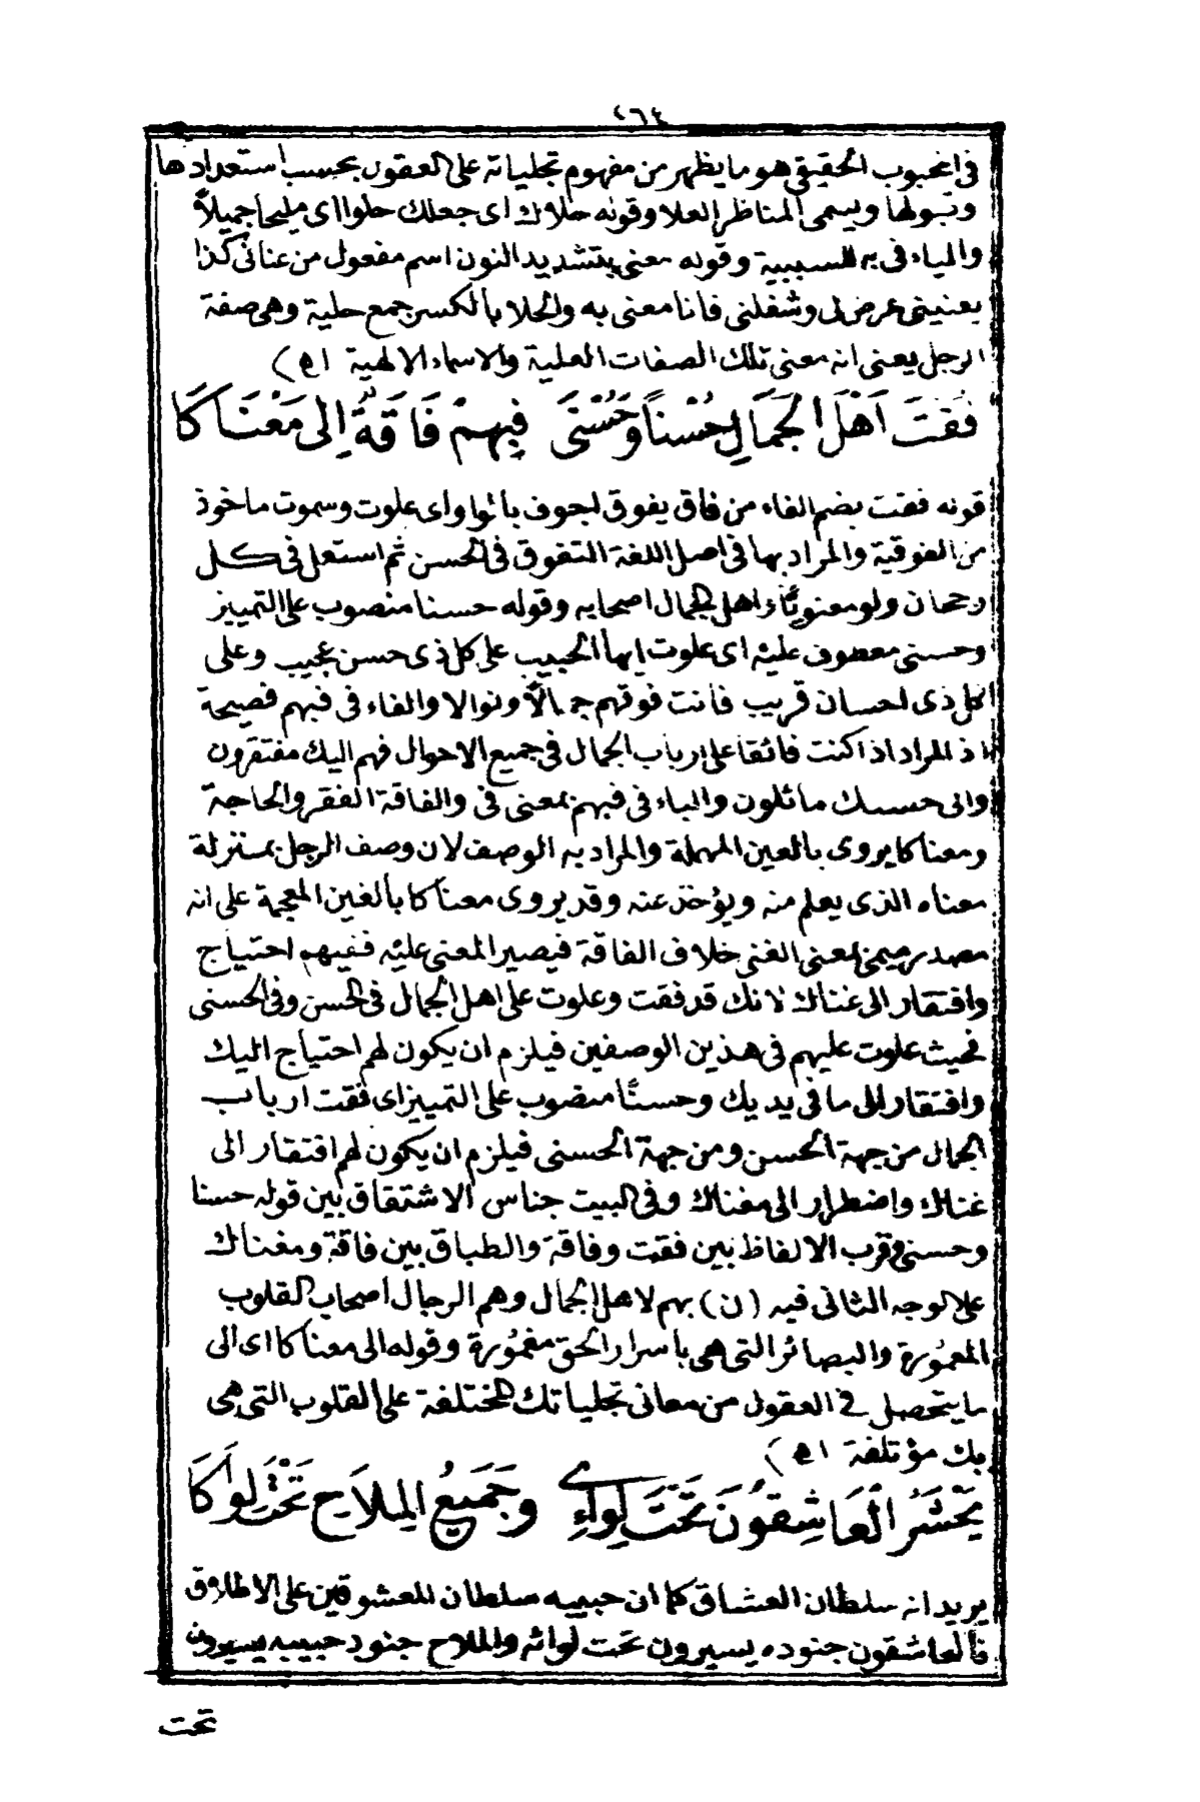 ٢٦٤
في المحبوب الحقيقي هو ما يظهر من مفهوم تجلياته على العقول بحسب استعدادها
وقبولها ويسمى المناظر العلا وقوله حلاك اى جعلك حلوا اى مليحا جميلاً
والباء في به للسببية وقوله معنى بتشديد النون اسم مفعول من عناني كذا
يعنيني عرض لي وشغلني فانا معنى به والحلا بالكسر جمع حلية وهي صفة
الرجل يعنى انه معنى تلك الصفات العلية والاسماء الالهية اه)
فُقْتَ اَهْلَ الجَمَالِ حُسْناً وَحُسْنَى فَبِهِمْ فَاقَةٌ اِلى مَعْنَاكَا
قوله فقت بضم الفاء من فاق يفوق اجوف بالواو اى علوت وسموت ماخوذ
من الفوقية والمراد بها في اصل اللغة التفوق في الحسن ثم استعمل في كل
رجحان ولو معنوياً واهل الجمال اصحابه وقوله حسنا منصوب على التمييز
وحسنى معطوف عليه اى علوت ايها الحبيب على كل ذى حسن عجيب وعلى
كل ذى احسان قريب فانت فوقهم جمالاً ونوالا والفاء في فبهم فصيحة
اذ المراد اذا كنت فائقا على ارباب الجمال في جميع الاحوال فهم اليك مفتقرون
والى حسنك مائلون والباء في فبهم بمعنى في والفاقة الفقر والحاجة
ومعناكا يروى بالعين المهملة والمراد به الوصف لان وصف الرجل بمنزلة
معناه الذى يعلم منه ويؤخذ عنه وقد يروى مغناكا بالغين المعجمة على انه
مصدر ميمي بمعنى الغنى خلاف الفاقة فيصير المعنى عليه ففيهم احتياج
وافتقار الى غناك لانك قد فقت وعلوت على اهل الجمال في الحسن وفي الحسنى
فحيث علوت عليهم في هذين الوصفين فيلزم ان يكون لهم احتياج اليك
وافتقار الى ما في يديك وحسناً منصوب على التمييز اى فقت ارباب
الجمال من جهة الحسن ومن جهة الحسنى فيلزم ان يكون لهم افتقار الى
غناك واضطرار الى مغناك وفي البيت جناس الاشتقاق بين قوله حسنا
وحسنى وقرب الالفاظ بين فقت وفاقة والطباق بين فاقة ومغناك
على الوجه الثاني فيه (ن) بهم لاهل الجمال وهم الرجال اصحاب القلوب
المعمورة والبصائر التي هي باسرار الحق مغمورة وقوله الى معناكا اى الى
ما يتحصل في العقول من معاني تجلياتك المختلفة على القلوب التي هي
بك مؤتلفة اه)
يُحْشَرُ الْعَاشِقُونَ تَحْتَ لِوَائِي وَجَمِيعُ المِلَاحِ تَحْتَ لِوَاكَا
يريد انه سلطان العشاق كما ان حبيبه سلطان المعشوقين على الاطلاق
فالعاشقون جنوده يسيرون تحت لوائه والملاح جنود حبيبه يسيرون
تحت